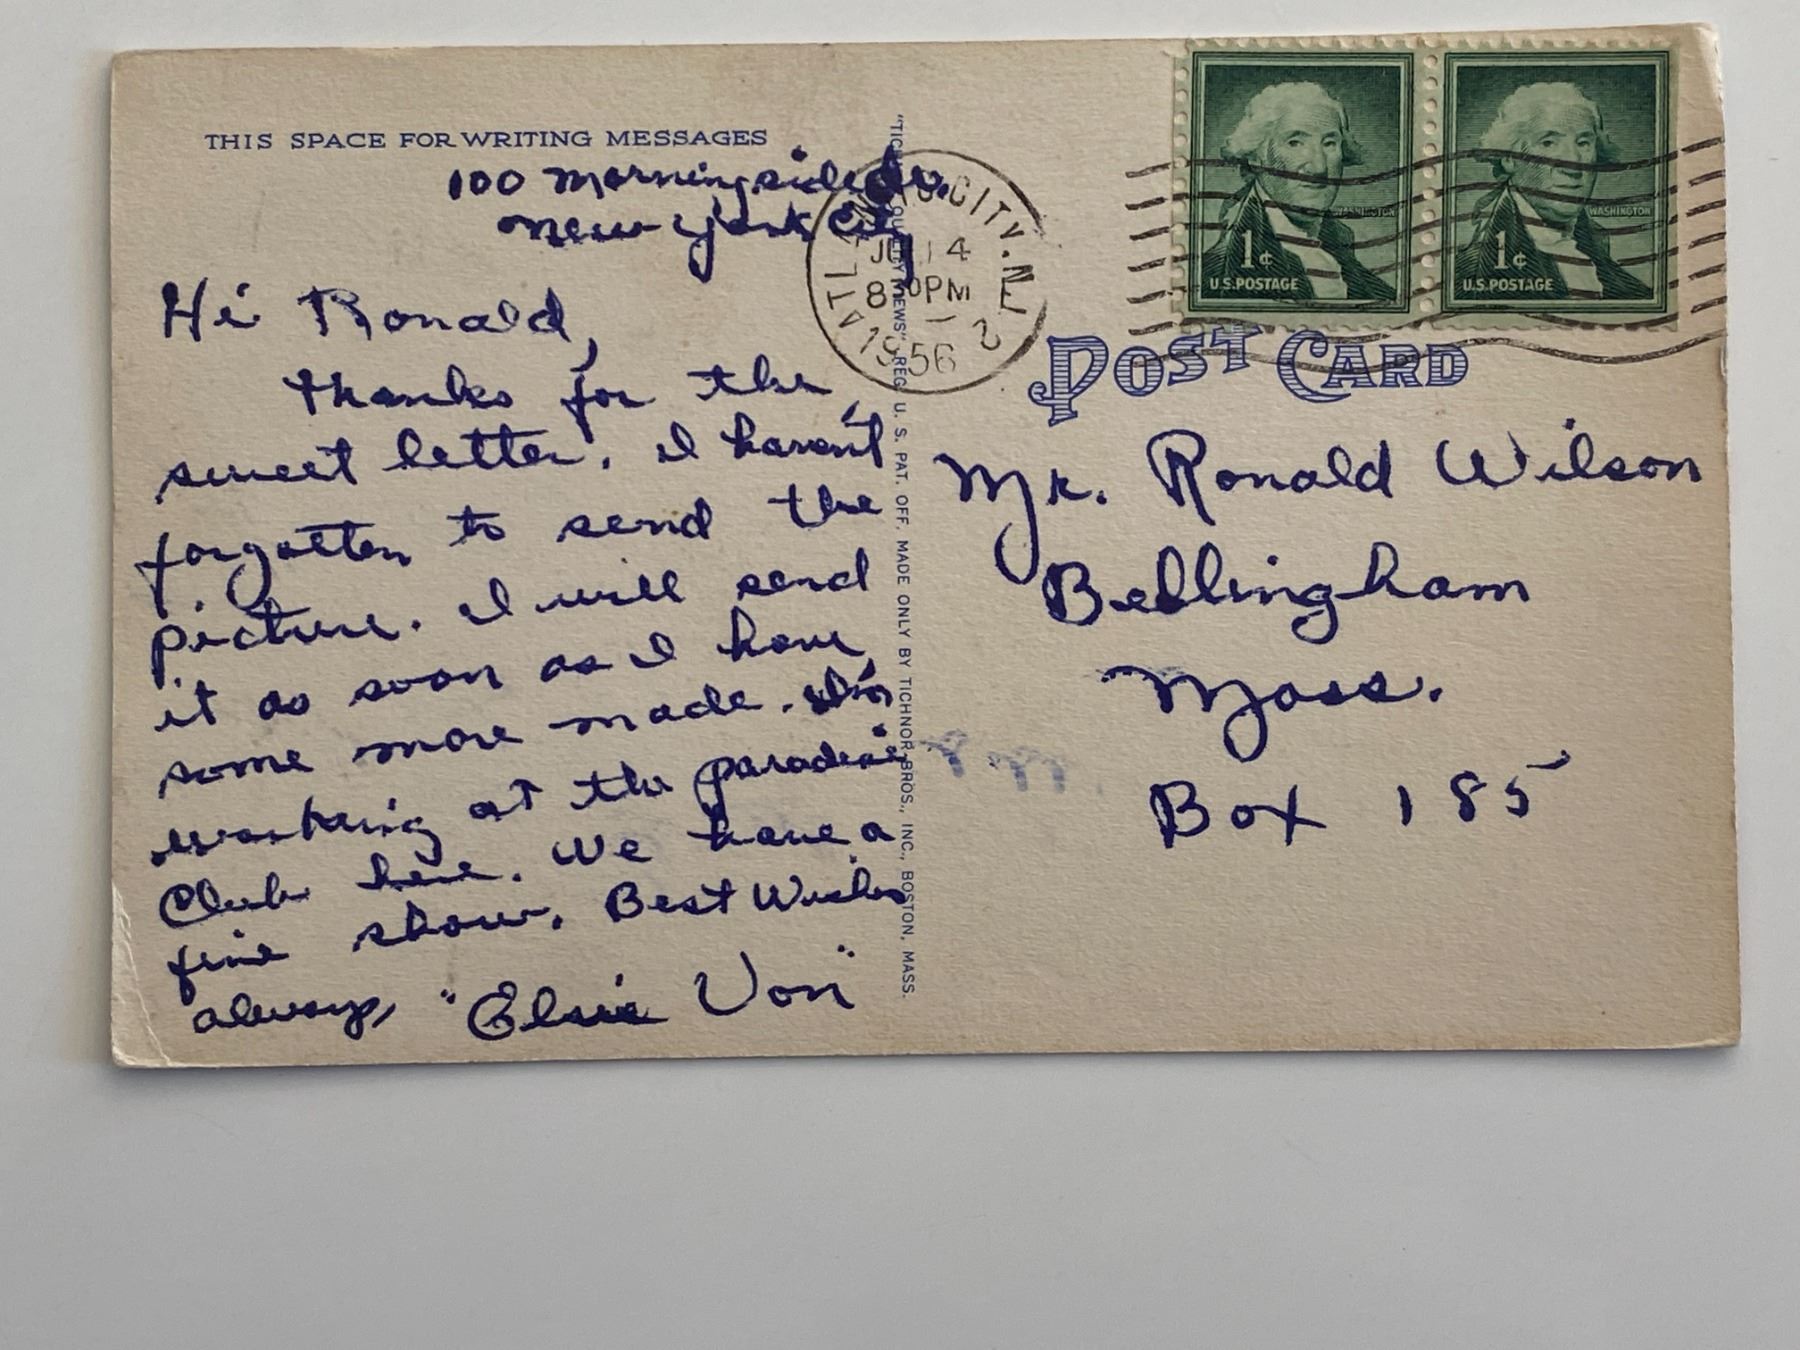 THIS SPACE FOR WRITING MESSAGES
100 Morningside Dr.
New York City
Hi Ronald,
Thanks for the
sweet letter. I haven't
forgotten to send the
picture. I will send
it as soon as I have
some more made. I'm
working at the paradise
Club here. We have a
fine show. Best Wishes
always, "Elsie Von"
"TICHNOR QUALITY VIEWS" REG. U. S. PAT. OFF. MADE ONLY BY TICHNOR BROS., INC., BOSTON, MASS.
ATLANTIC CITY, N.J. 2
14
8 PM
1956
WASHINGTON
1¢
U.S. POSTAGE
WASHINGTON
1¢
U.S. POSTAGE
POST CARD
Mr. Ronald Wilson
Bellingham
Mass.
Box 185